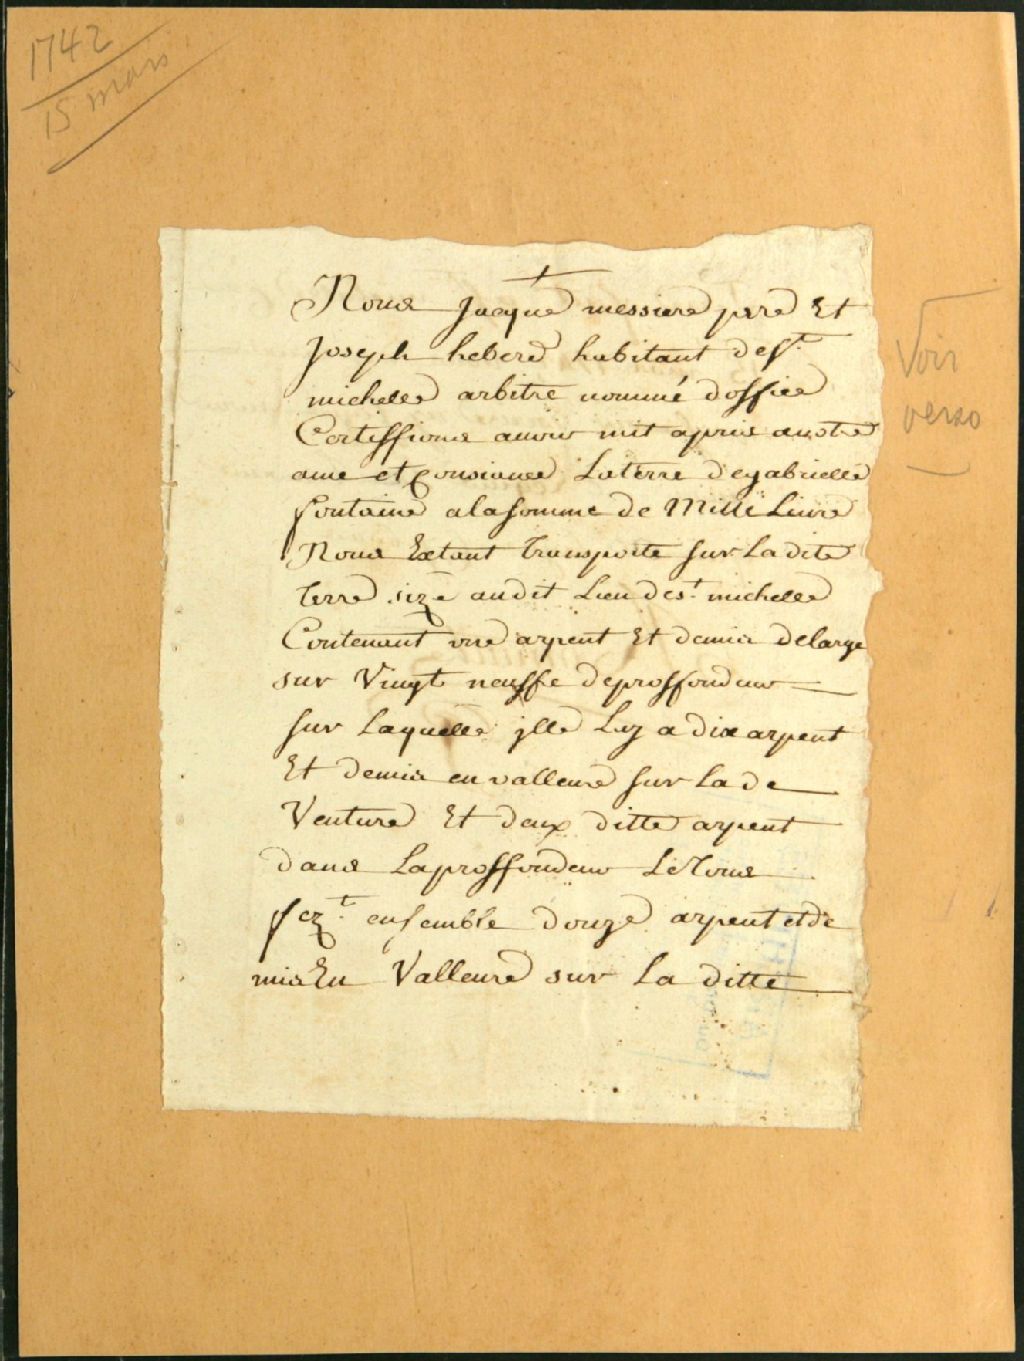 1742
15 mars
Nous Jacque messiere pere Et
Joseph hebere habitant de st
michelle arbitre nommé doffice
Certiffions avoir mit apries anotre
ame et Consiance La terre de gabrielle
fontaine a la somme de Mille Livre
Nous Estant transporte sur La dite
terre size audit Lieu de st michelle
Contenant une arpent Et demis de large
sur Vingt neuffe de proffondeur
sur Laquelle jlle Luy a dix arpent
Et demis en valleure sur La de
Venture Et deux ditte arpent
dans La proffondeur Le tous
fezt ensemble douze arpent et de
mis En Valleure sur La ditte
Voir
verso